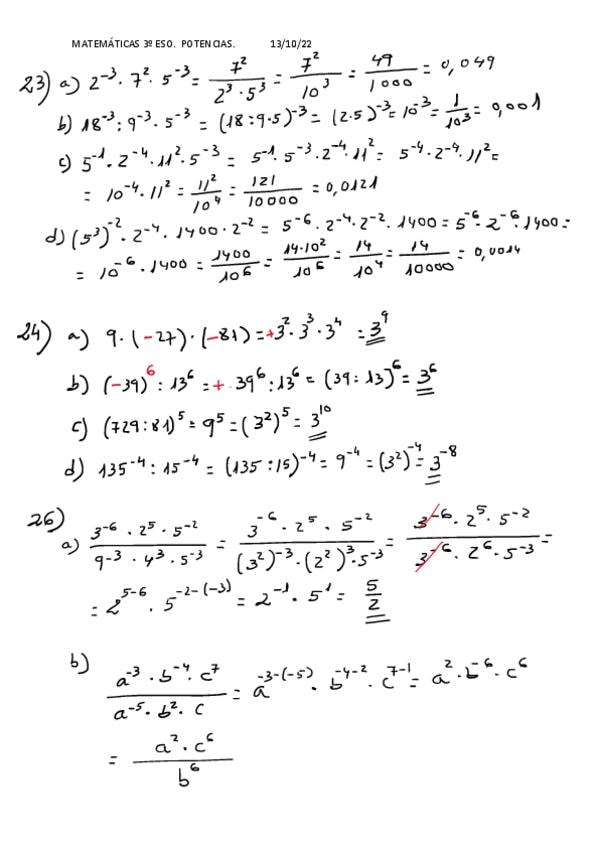 MATEMÁTICAS 3º ESO. POTENCIAS. 13/10/22
23) a) 2⁻³ · 7² · 5⁻³ = 7² / (2³ · 5³) = 7² / 10³ = 49 / 1000 = 0,049
b) 18⁻³ : 9⁻³ · 5⁻³ = (18 : 9 · 5)⁻³ = (2 · 5)⁻³ = 10⁻³ = 1 / 10³ = 0,001
c) 5⁻¹ · 2⁻⁴ · 11² · 5⁻³ = 5⁻¹ · 5⁻³ · 2⁻⁴ · 11² = 5⁻⁴ · 2⁻⁴ · 11² =
= 10⁻⁴ · 11² = 11² / 10⁴ = 121 / 10000 = 0,0121
d) (5³)⁻² · 2⁻⁴ · 1400 · 2⁻² = 5⁻⁶ · 2⁻⁴ · 2⁻² · 1400 = 5⁻⁶ · 2⁻⁶ · 1400 =
= 10⁻⁶ · 1400 = 1400 / 10⁶ = 14 · 10² / 10⁶ = 14 / 10⁴ = 14 / 10000 = 0,0014
24) a) 9 · (-27) · (-81) = +3² · 3³ · 3⁴ = 3⁹
b) (-39)⁶ : 13⁶ = + 39⁶ : 13⁶ = (39 : 13)⁶ = 3⁶
c) (729 : 81)⁵ = 9⁵ = (3²)⁵ = 3¹⁰
d) 135⁻⁴ : 15⁻⁴ = (135 : 15)⁻⁴ = 9⁻⁴ = (3²)⁻⁴ = 3⁻⁸
26)
a) (3⁻⁶ · 2⁵ · 5⁻²) / (9⁻³ · 4³ · 5⁻³) = (3⁻⁶ · 2⁵ · 5⁻²) / ((3²)⁻³ · (2²)³ · 5⁻³) = (3⁻⁶ · 2⁵ · 5⁻²) / (3⁻⁶ · 2⁶ · 5⁻³) =
= 2⁵⁻⁶ · 5⁻²⁻⁽⁻³⁾ = 2⁻¹ · 5¹ = 5 / 2
b) (a⁻³ · b⁻⁴ · c⁷) / (a⁻⁵ · b² · c) = a⁻³⁻⁽⁻⁵⁾ · b⁻⁴⁻² · c⁷⁻¹ = a² · b⁻⁶ · c⁶
= (a² · c⁶) / b⁶